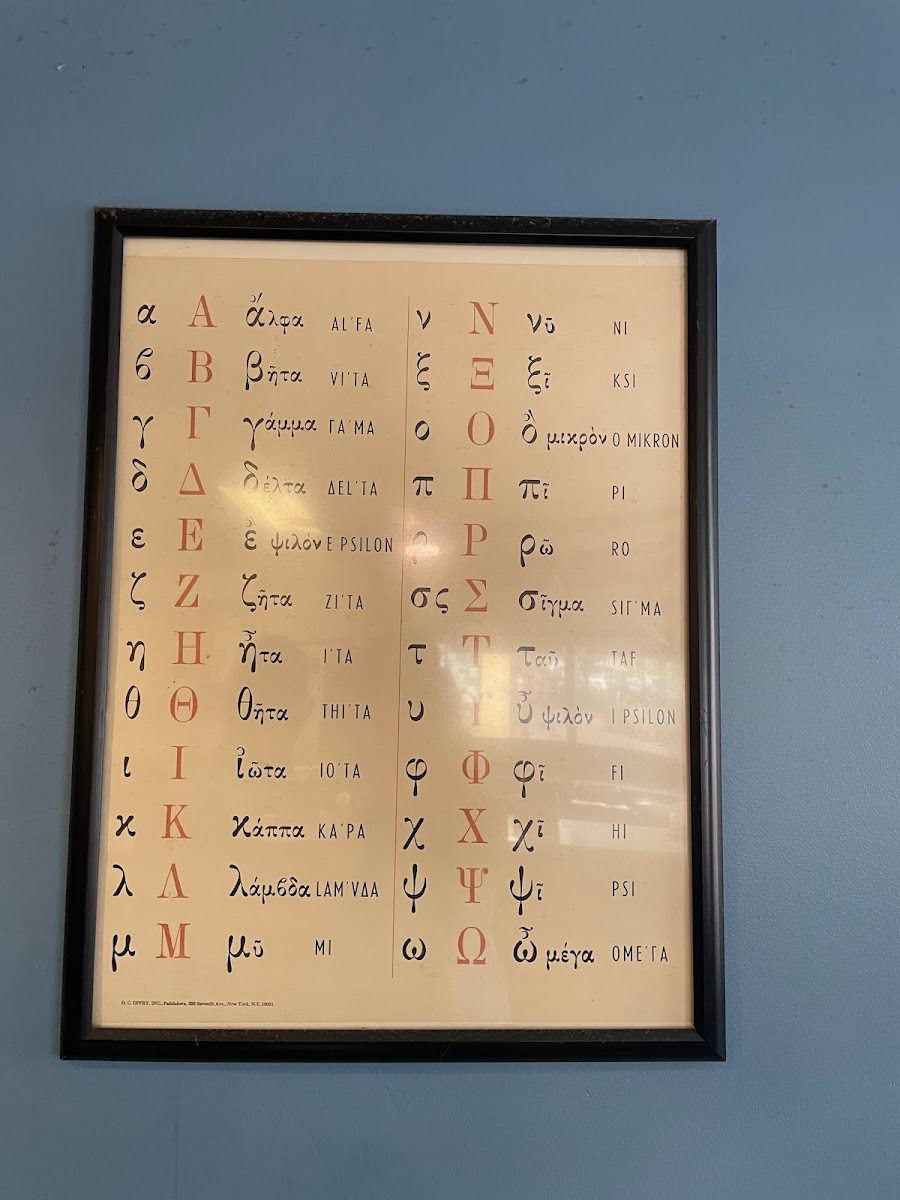 α Α ἄλφα AL'FA
ϐ Β βῆτα VI'TA
γ Γ γάμμα ΓA'MA
δ Δ δέλτα ΔEL'TA
ε Ε ἒ ψιλόν E PSILON
ζ Ζ ζῆτα ZI'TA
η Η ἦτα I'TA
θ Θ θῆτα THI'TA
ι Ι ἰῶτα IO'TA
κ Κ κάππα KA'PA
λ Λ λάμϐδα LAM'VΔA
μ Μ μῦ MI
ν Ν νῦ NI
ξ Ξ ξῖ KSI
ο Ο ὂ μικρὸν O MIKRON
π Π πῖ PI
ρ Ρ ρῶ RO
σς Σ σῖγμα SIΓ'MA
τ Τ ταῦ TAF
υ Υ ὖ ψιλὸν I PSILON
φ Φ φῖ FI
χ Χ χῖ HI
ψ Ψ ψῖ PSI
ω Ω ὦ μέγα OME'ΓA
D. C. DIVRY, INC., Publishers, Seventh Ave., New York, N.Y.